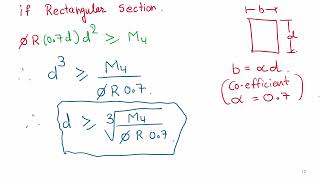 if Rectangular Section.
ø R (0.7d) d² ≥ M₄
∴ d³ ≥ M₄ / ø R 0.7
∴ d ≥ ∛(M₄ / ø R 0.7)
b
d
b = αd.
(Co-efficient
α = 0.7)